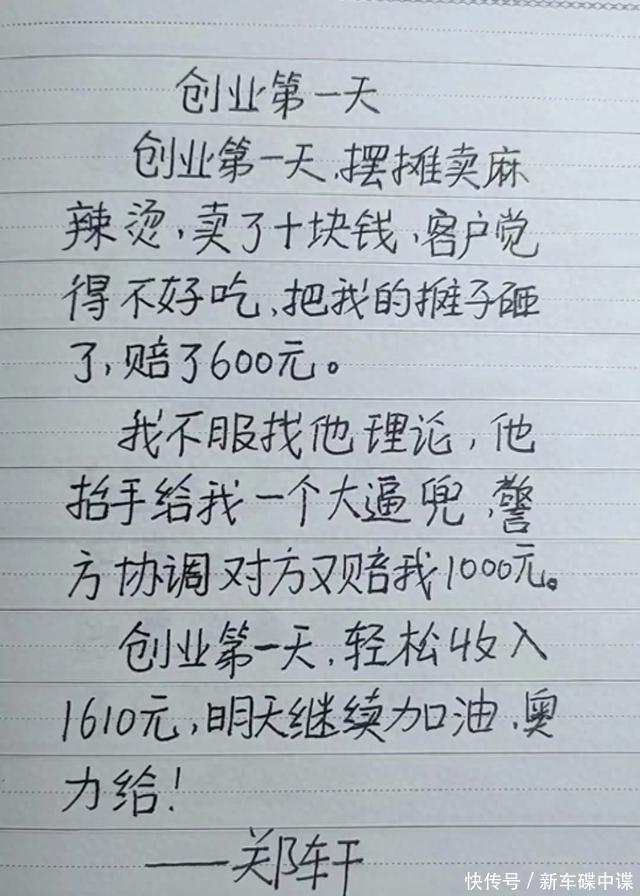 创业第一天
创业第一天,摆摊卖麻
辣烫,卖了十块钱,客户觉
得不好吃,把我的摊子砸
了,赔了600元。
我不服找他理论,他
抬手给我一个大逼兜,警
方协调对方又赔我1000元。
创业第一天,轻松收入
1610元,明天继续加油,奥
力给!
——郑轩
快传号/新车碟中谍